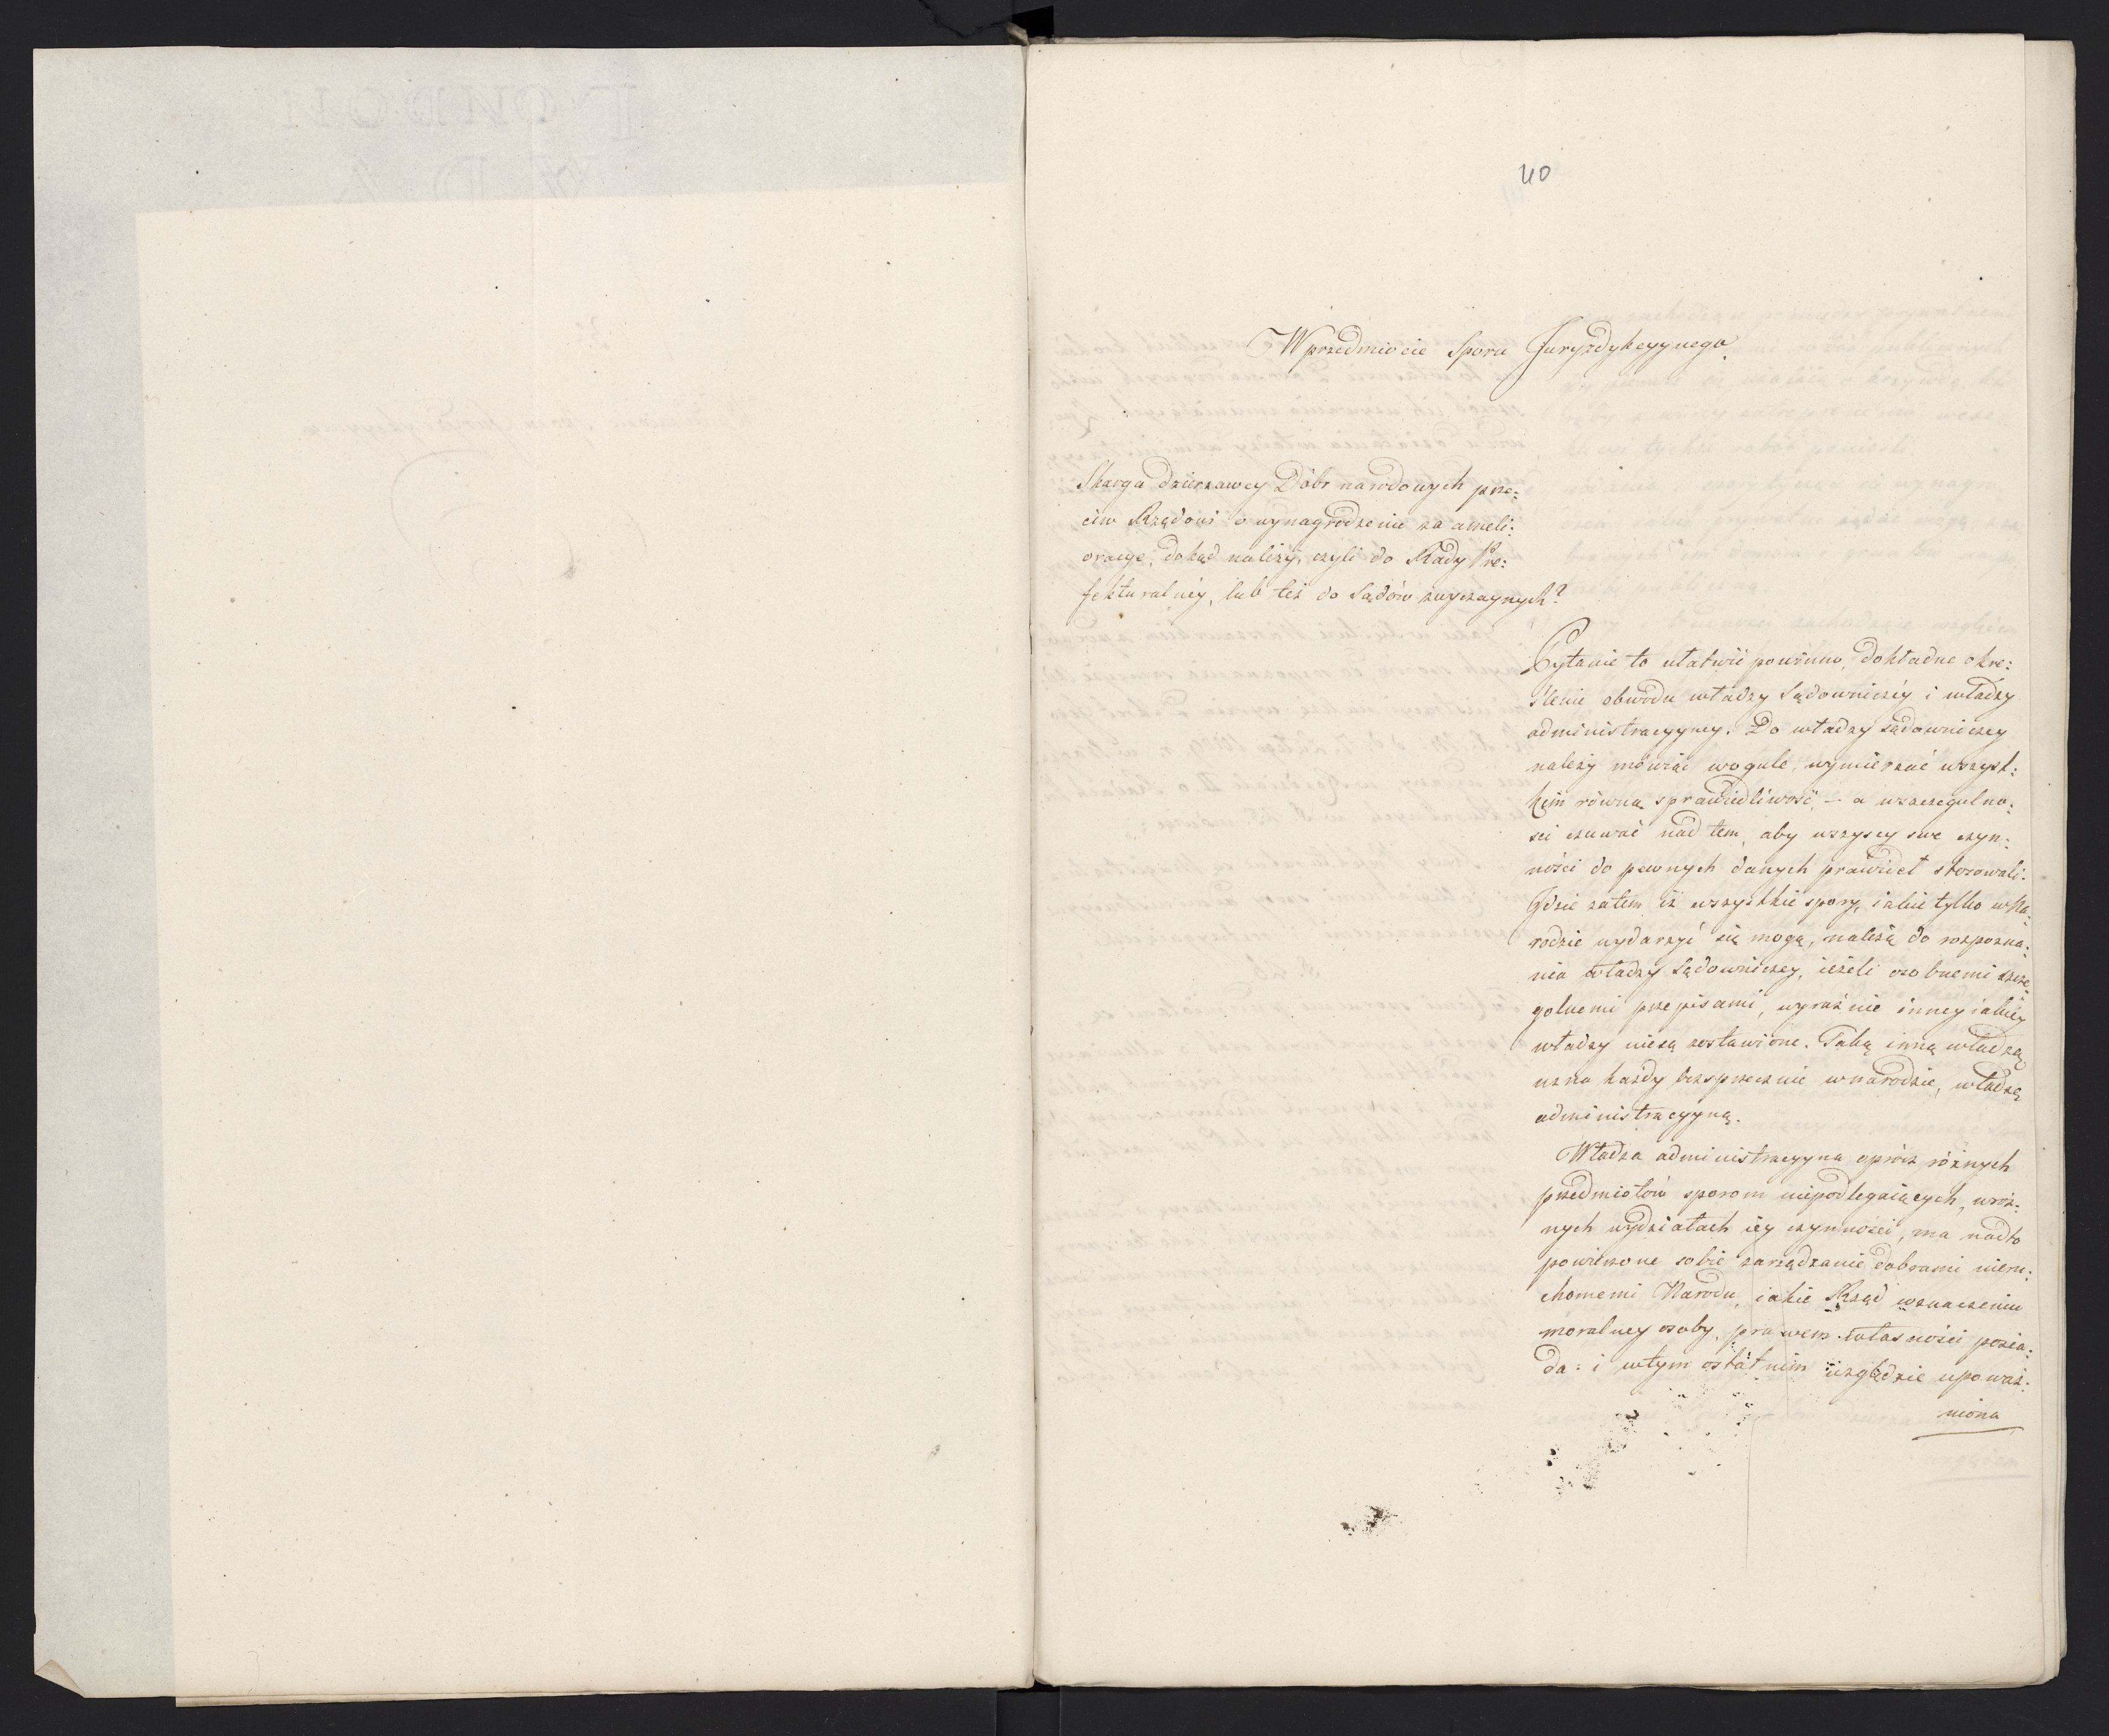 40
W przedmiocie Sporu Juryzdykcyynego
Skarga dzierzawcy Dóbr narodowych prze:
ciw Rządowi o wynagrodzenie za ameli:
oracye, dokąd należy, czyli do Rady Pre:
fekturalnéy, lub też do Sądów zwyczaynych?
Pytanie to ułatwić powinno, dokładne okre:
ślenie obwodu władzy Sądowniczéy i władzy
administracyyney. Do władzy sądowniczey
należy mówiąc wogule, wymierzać wszyst:
kim równą sprawiedliwość, – a wszczegulno:
sci czuwać nad tem, aby wszyscy swe czyn:
ności do pewnych danych prawideł stosowali.
Idzie zatem iż wszystkie spory, iakie tylko w Na:
rodzie wydarzyć się mogą, należą do rozpozna:
nia władzy Sądowniczey, ieżeli osobnemi szcze:
golnemi przepisami, wyraźnie inney iakiey
władzy niesą zostawione. Taką inną władzą
uzna każdy bezsprzecznie w narodzie, władzę
administracyyną.
Władza administracyyna oprócz różnych
przedmiotów sporom niepodlegaiących, wróż:
nych wydziałach iey czynności, ma nadto
powierzone sobie zarządzanie dobrami nieru:
chomemi Narodu, iakie Rząd wznaczeniu
moralney osoby, prawem własności posia:
da: i wtym ostatnim względzie upoważ:
niona